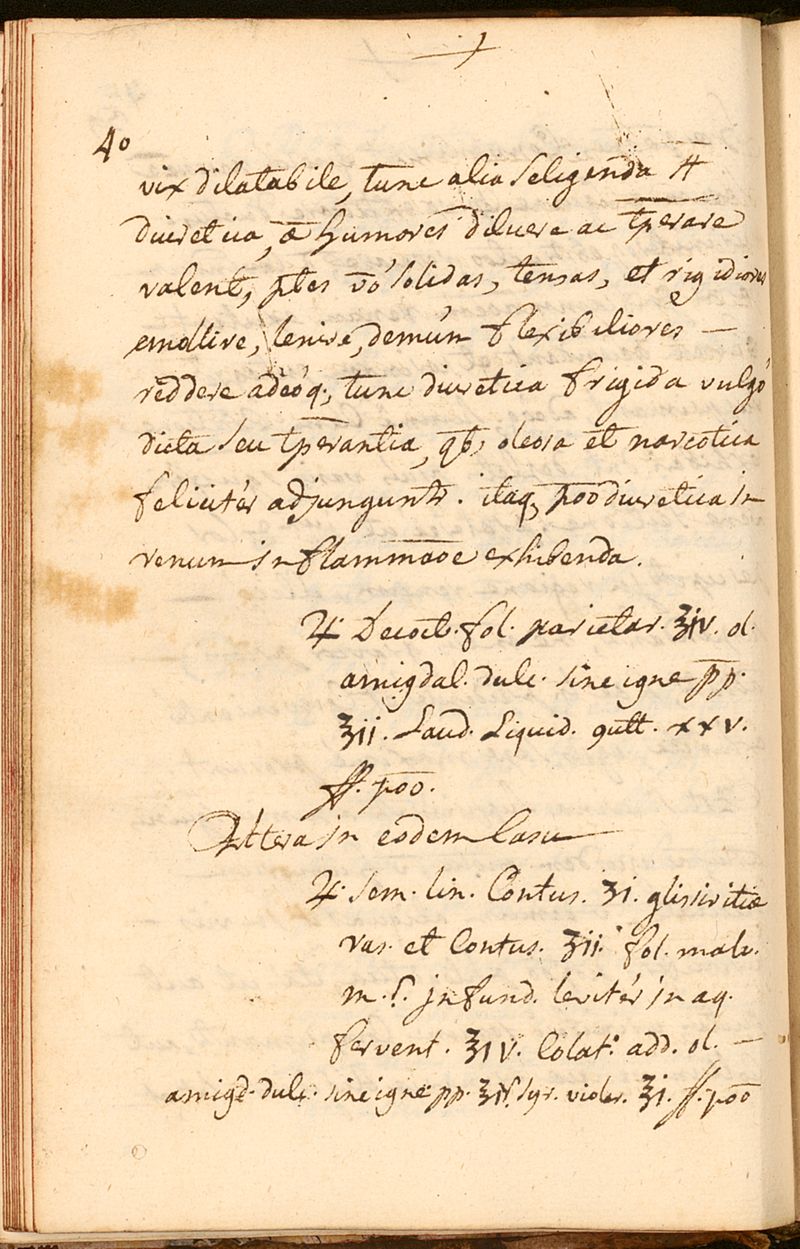 40
vix dilatabile, tunc alia seligenda st̄
diuretica, æ humores diluere ac tp̄erare
valent, ptes vō solidas, tensas, et rigidiores
emollire, lenire, demùm flexibiliores —
reddere adeóq;, tunc diuretica frigida vulgò
dicta seu tp̄erantia, qb; oleosa et narcotica
felicitèr adjungunt̄r. itaq; poō diuretica in
renum inflammaōe exhibenda.
♃ Decoct. fol. parietar. ℥iv. ol.
amigdal. dulc. sine igne pp.
℥ii. Laud. Liquid. gutt. xxv.
ff. poō.
Altera in eodem Casu
♃ Sem. lin. Contus. ℥i. glissiritiæ
ras. et Contus. ℥ii. fol. malv.
m. f. infund. levitèr in aq.
fervent. ℥iv. Colat. add. ol. —
amigd. dulc. sine igne pp. ℥iv. Syr. violar. ℥i. ff. poō